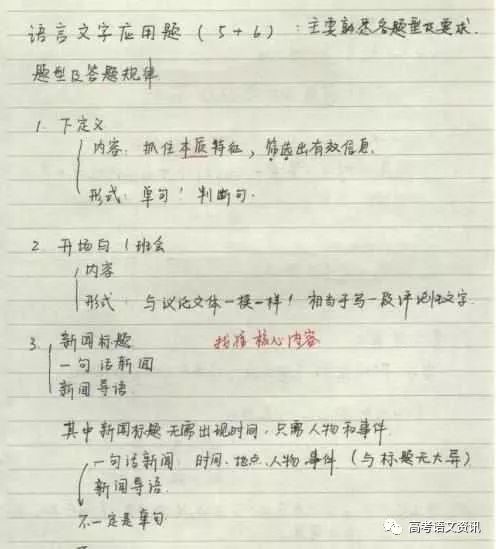 语言文字应用题（5+6）：主要熟悉各题型及要求.
题型及答题规律
1. 下定义
内容：抓住本质特征，筛选出有效信息.
形式：单句！判断句.
2. 开场白（班会
内容
形式：与议论文体一模一样！相当于写一段评论性文字.
3. 新闻标题 找准核心内容
一句话新闻
新闻导语
其中新闻标题无需出现时间，只需人物和事件
一句话新闻：时间、地点、人物、事件（与标题无大异）
新闻导语.
不一定是单句
高考语文资讯